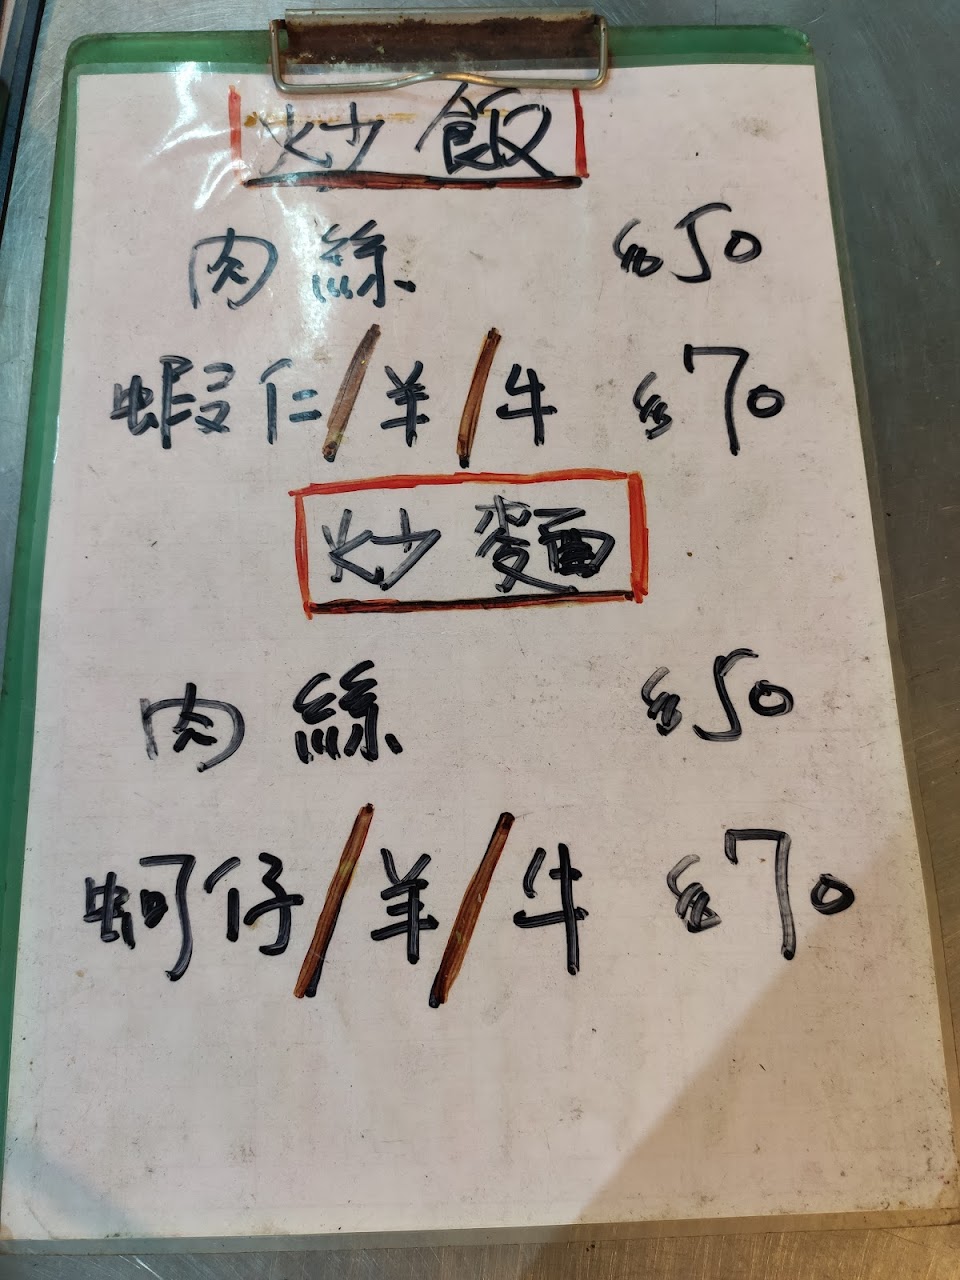 炒飯
肉絲 $50
蝦仁/羊/牛 $70
炒麵
肉絲 $50
蚵仔/羊/牛 $70